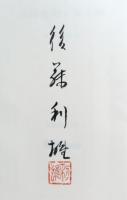 後藤利雄